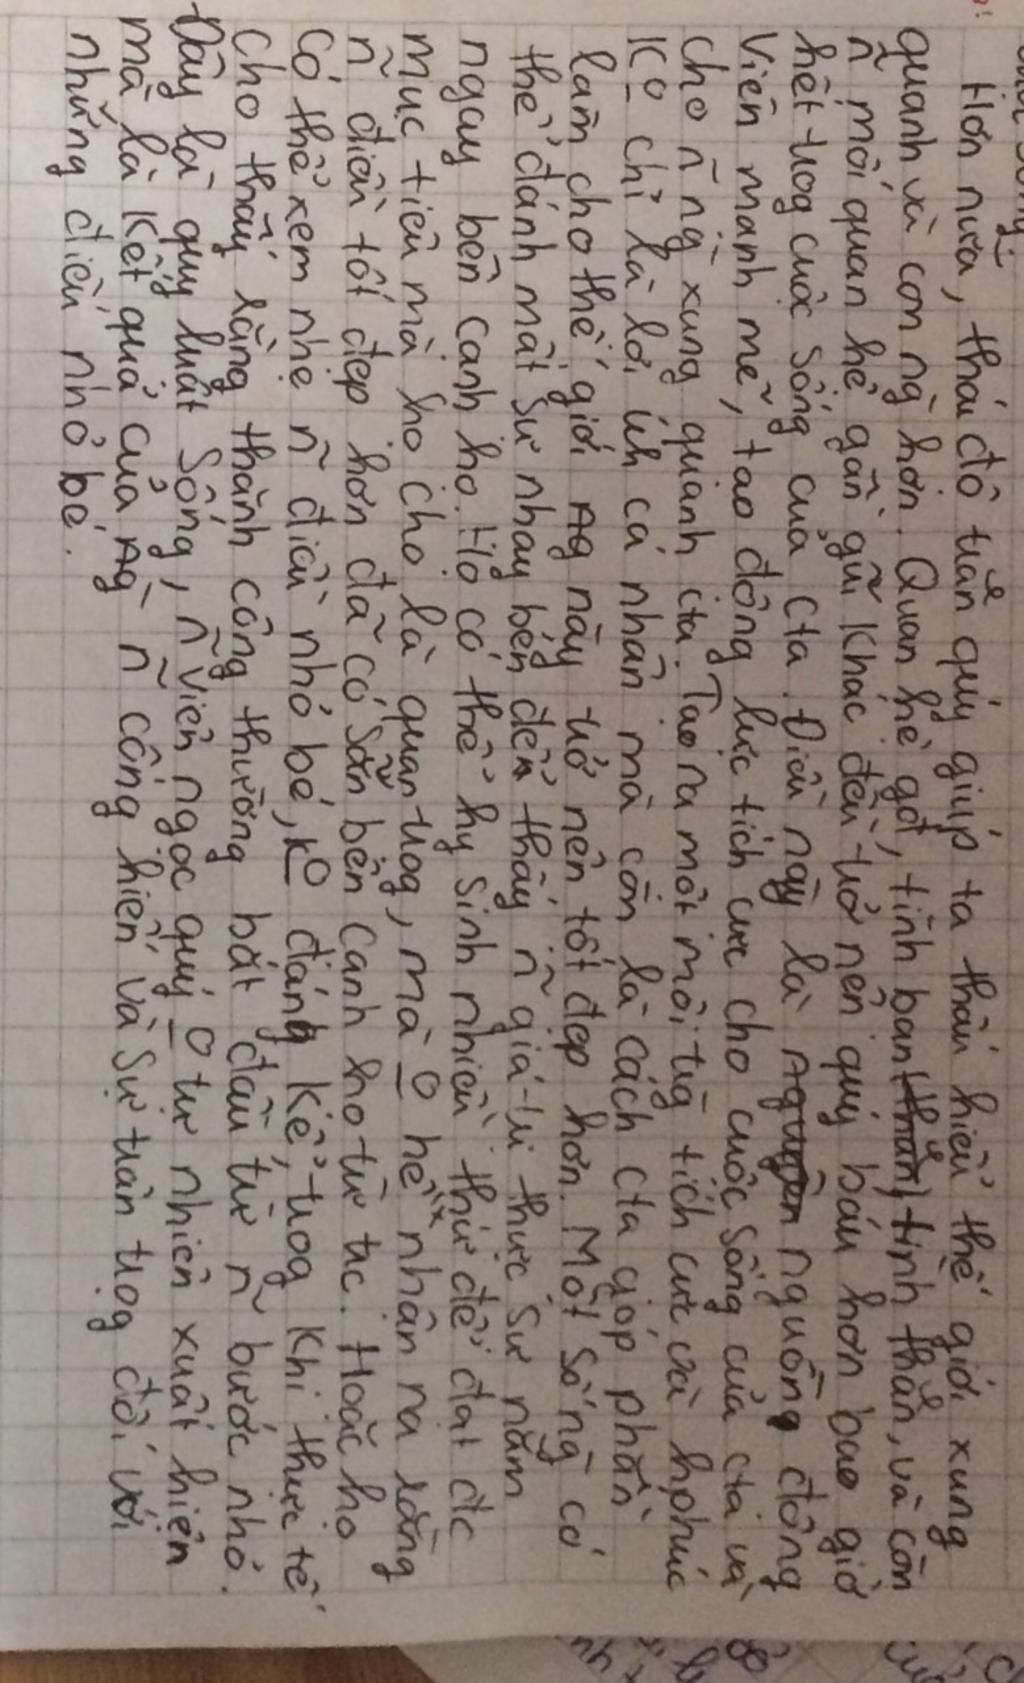 Hơn nữa, thái độ trân quý giúp ta thấu hiểu thế giới xung
quanh và con ng̀ hơn. Quan hệ gđ, tình bạn, tình thân, và còn
ñ mối quan hệ gần gũi khác đều trở nên quý báu hơn bao giờ
hết trog cuộc sống của cta. Điều này là nguồn động
viên mạnh mẽ, tạo động lực tích cực cho cuộc sống của cta và
cho ñ ng̀ xung quanh cta. Tạo ra một môi trg̀ tích cực và hphúc
ko chỉ là lợi ích cá nhân mà còn là cách cta góp phần
làm cho thế giới này trở nên tốt đẹp hơn. Một số ng̀ có
thể đánh mất sự nhạy bén để thấy ñ giá trị thực sự nằm
ngay bên cạnh họ. Họ có thể hy sinh nhiều thứ để đạt đc
mục tiêu mà họ cho là quan trog, mà o hề nhận ra rằng
ñ điều tốt đẹp hơn đã có sẵn bên cạnh họ từ trc. Hoặc họ
có thể xem nhẹ ñ điều nhỏ bé, ko đáng kể, trog khi thực tế
cho thấy rằng thành công thường bắt đầu từ ñ bước nhỏ.
Đây là quy luật sống, ñ viên ngọc quý o tự nhiên xuất hiện
mà là kết quả của ñ cống hiến và sự trân trọg đối với
những điều nhỏ bé.